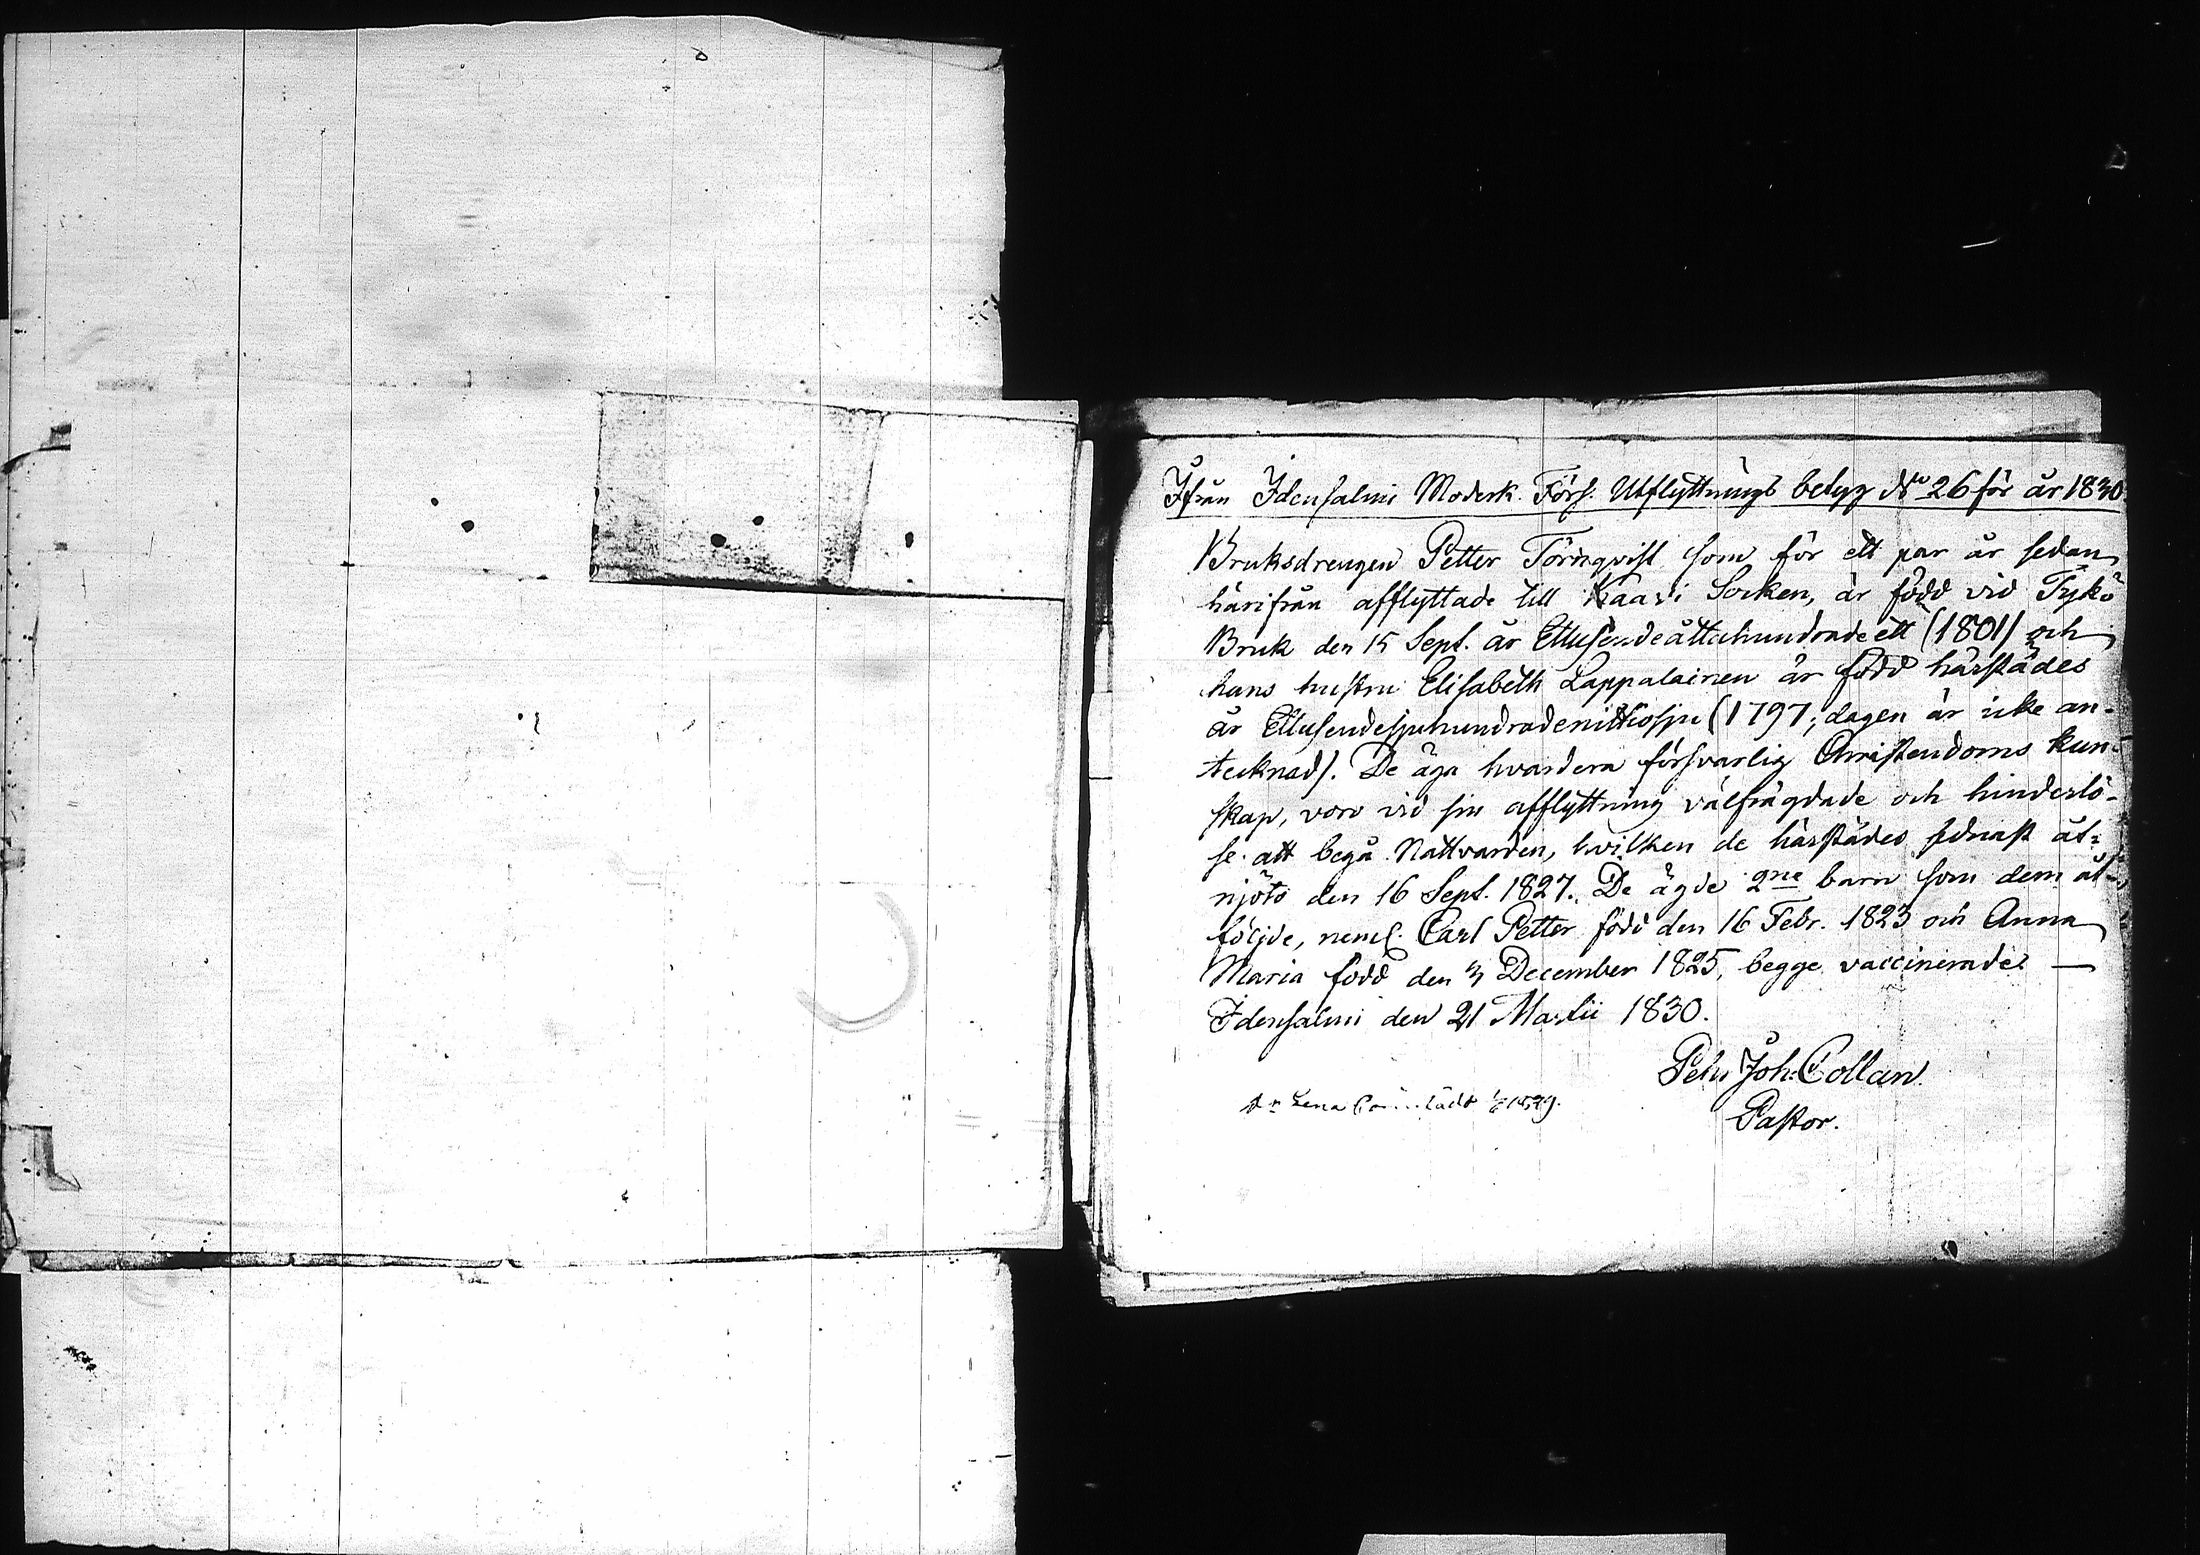 Ifrån Idensalmi Moderk. Förs. Utflyttnings betyg No 26 för år 1830
Bruksdrengen Petter Törnqvist som för ett par år sedan
härifrån afflyttade till Kaavi Socken, är född vid Tykö
Bruk den 15 Sept. år Ettusendeåttahundradeett (1801) och
hans hustru Elisabeth Lappalainen är född härstädes
år Ettusendesjuhundradenittiosju (1797; dagen är icke an-
tecknad). De äga hvardera försvarlig Christendoms kun-
skap, voro vid sin afflyttning välfrägdade och hinderlö-
se att begå Nattvarden, hvilken de härstädes sednast åt-
njöto den 16 Sept. 1827. De ägde 2ne barn som dem åt-
följde, neml. Carl Petter född den 16 Febr. 1823 och Anna
Maria född den 3 December 1825, begge vaccinerade. —
Idensalmi den 21 Martii 1830.
Petr Joh. Collan.
Pastor.
Lena 1829.